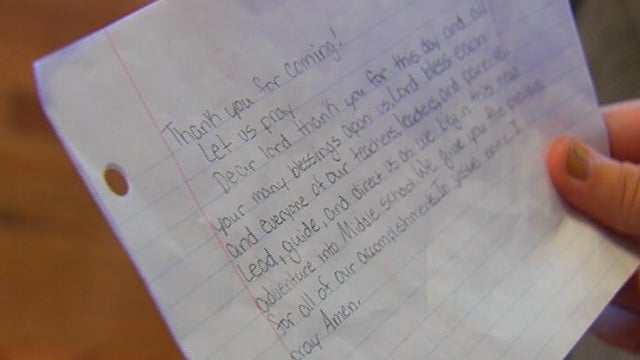 Thank you for coming!
Let us pray
Dear lord thank you for this day and all
your many blessings apon us, Lord bless each
and everyone of our teachers, leaders, and parents.
Lead, guide, and direct us as we begin this next
adventure into Middle school. We give you the praises
for all of our accomplishments. In Jesus name I
pray Amen.